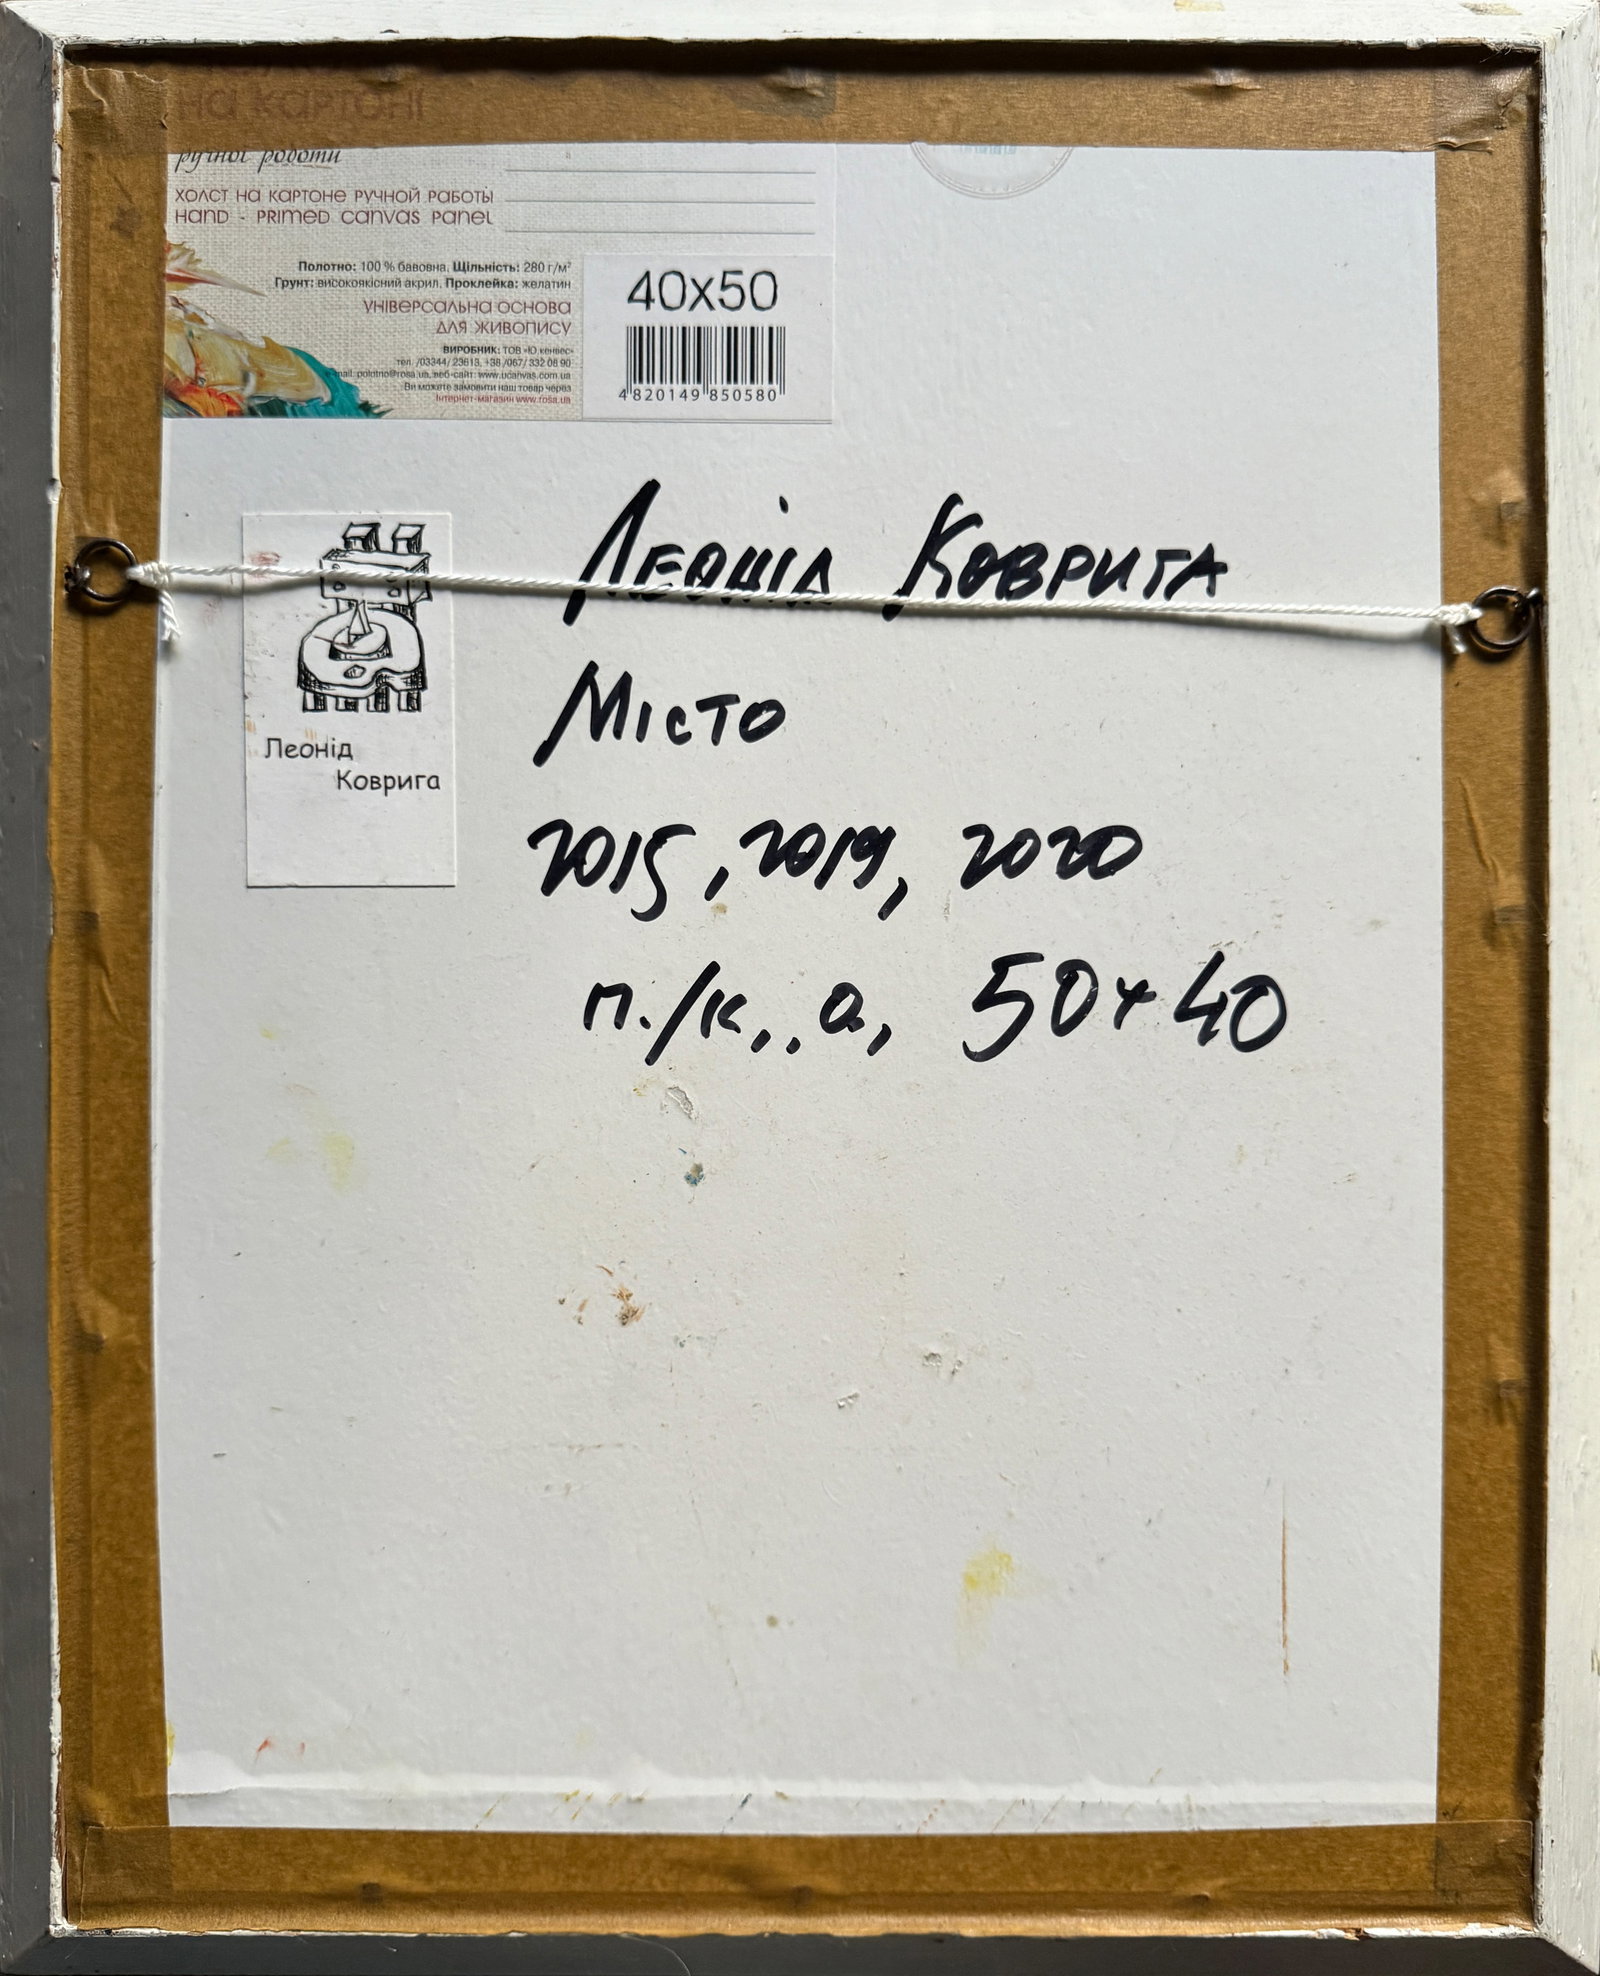 на картоні
ручної роботи
ХОЛСТ НА КАРТОНЕ РУЧНОЙ РАБОТЫ
HAND - PRIMED CANVAS PANEL
Полотно: 100 % бавовна, Щільність: 280 г/м²
Грунт: високоякісний акрил, Проклейка: желатин
УНІВЕРСАЛЬНА ОСНОВА
ДЛЯ ЖИВОПИСУ
ВИРОБНИК: ТОВ «Ю.кенвес»
тел. /03344/ 23613, +38 /067/ 332 08 90
e-mail: polotno@rosa.ua, веб-сайт: www.ucanvas.com.ua
Ви можете замовити наш товар через
Інтернет-магазин www.rosa.ua
40x50
4 820149 850580
Леонід Коврига
Місто
2015, 2019, 2020
п./к., а, 50x40
Леонід
Коврига